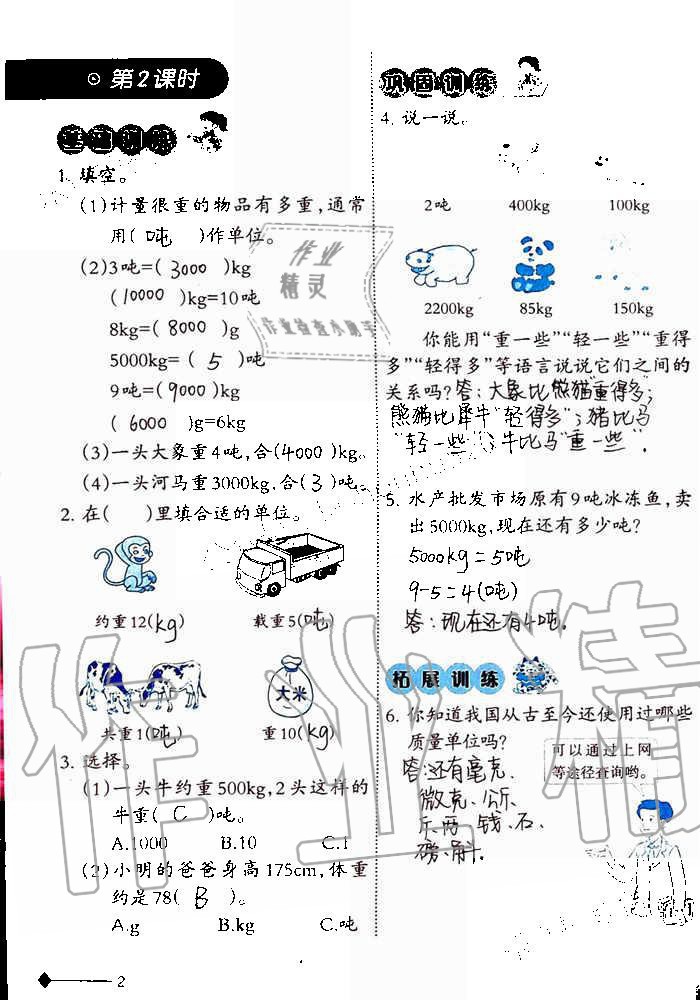 第2课时
基础训练
1. 填空。
(1)计量很重的物品有多重,通常
用(吨)作单位。
(2)3吨=(3000)kg
(10000)kg=10吨
8kg=(8000)g
5000kg=(5)吨
9吨=(9000)kg
(6000)g=6kg
(3)一头大象重4吨,合(4000)kg。
(4)一头河马重3000kg,合(3)吨。
2. 在( )里填合适的单位。
约重12(kg) 载重5(吨)
大米
共重1(吨) 重10(kg)
3. 选择。
(1)一头牛约重500kg,2头这样的
牛重( C )吨。
A.1000 B.10 C.1
(2)小明的爸爸身高175cm,体重
约是78( B )。
A.g B.kg C.吨
2
巩固训练
4. 说一说。
2吨 400kg 100kg
2200kg 85kg 150kg
你能用“重一些”“轻一些”“重得
多”“轻得多”等语言说说它们之间的
关系吗?答:大象比熊猫“重得多”;
熊猫比犀牛“轻得多”;猪比马
“轻一些”;牛比马“重一些”.
5. 水产批发市场原有9吨冰冻鱼,卖
出5000kg,现在还有多少吨?
5000kg=5吨
9-5=4(吨)
答:现在还有4吨.
拓展训练
6. 你知道我国从古至今还使用过哪些
质量单位吗?
可以通过上网
等途径查询哟。
答:还有毫克、
微克、公斤、
斤、两、钱、石、
磅、斛.
作业精灵
作业检查小助手
作业精